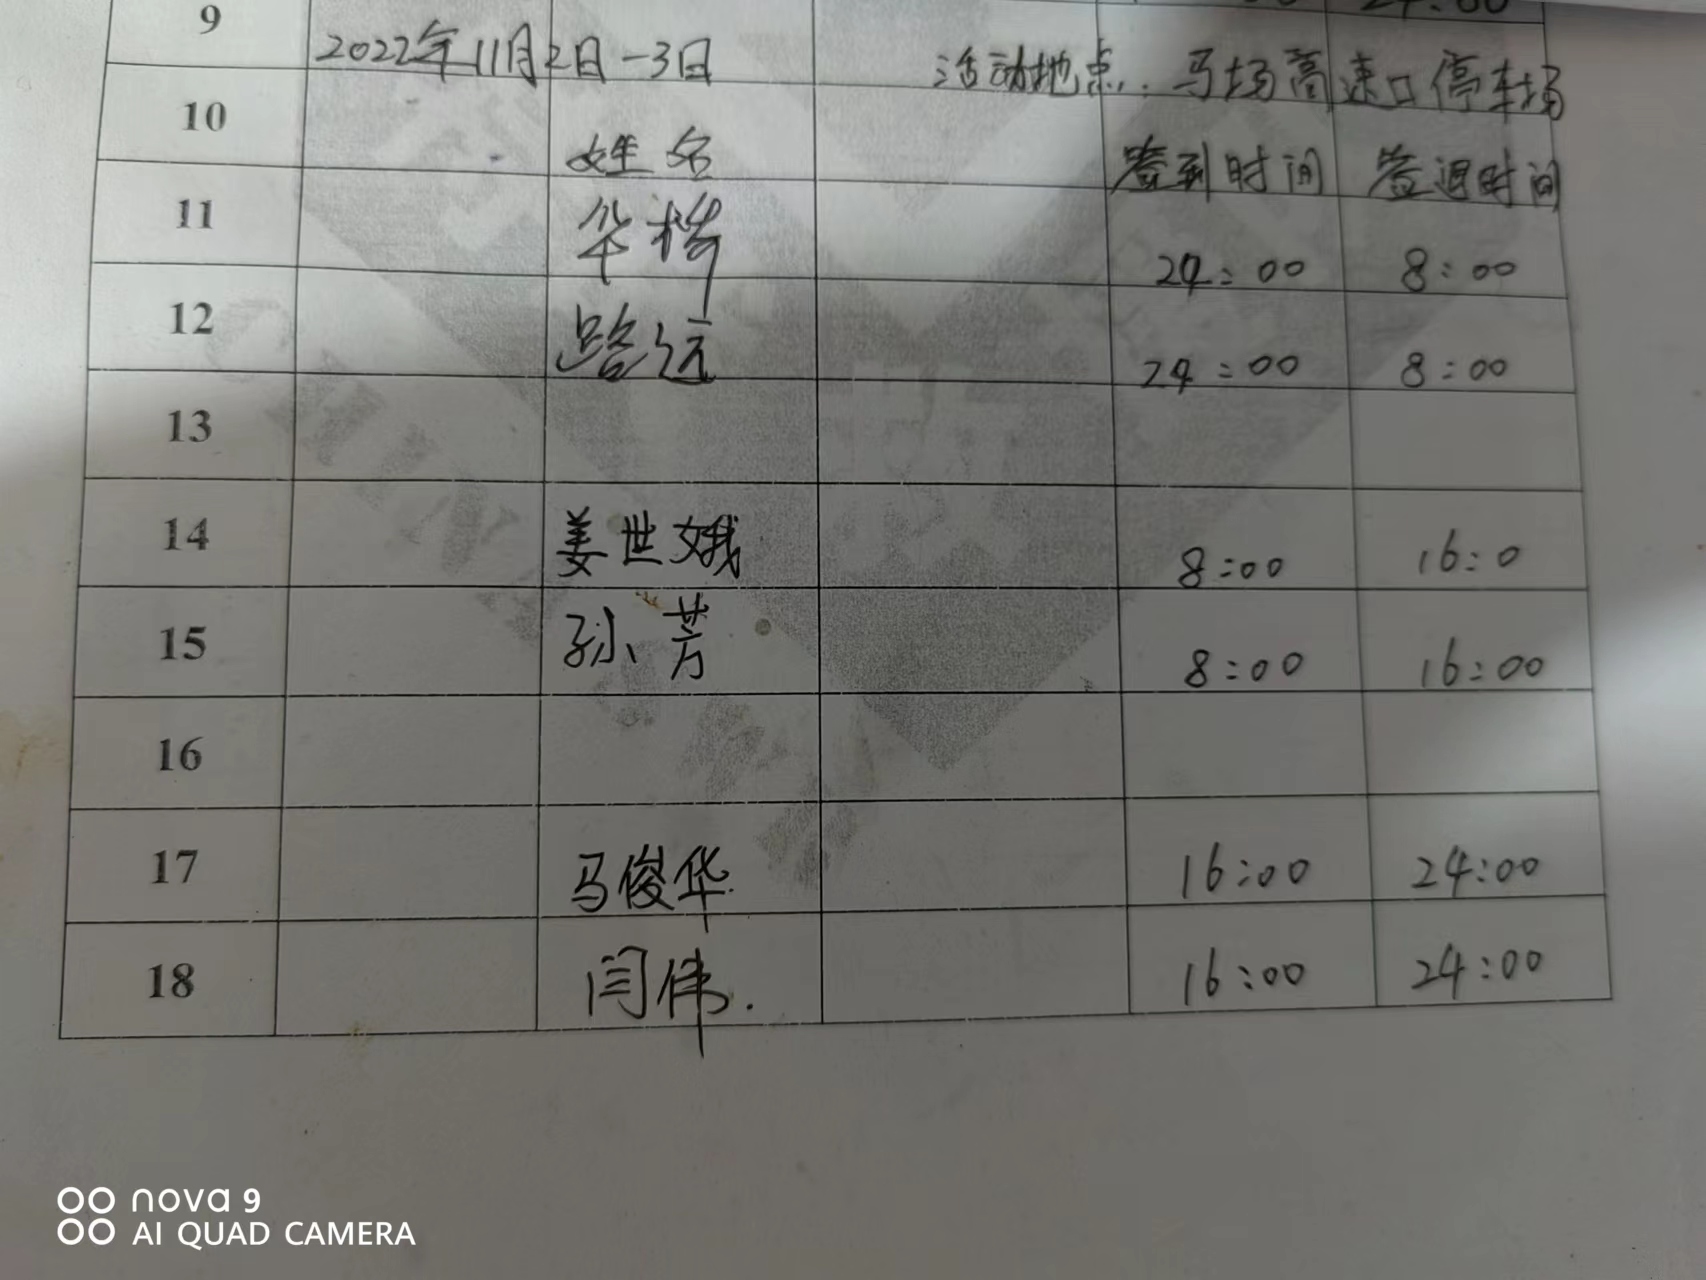 9
2022年11月2日-3日 活动地点:马场高速口停车场
10 姓名 签到时间 签退时间
11 华 24:00 8:00
12 路远 24:00 8:00
13
14 姜世娥 8:00 16:0
15 孙芳 8:00 16:00
16
17 马俊华. 16:00 24:00
18 闫伟. 16:00 24:00
nova 9
AI QUAD CAMERA